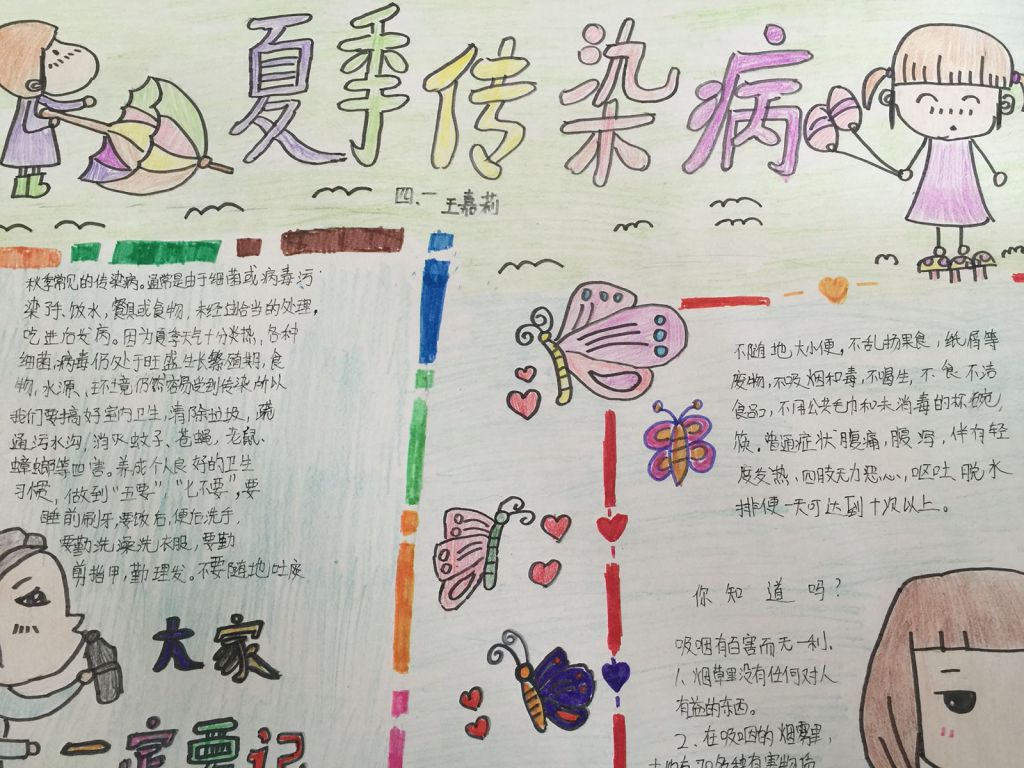 夏季传染病
四、一 王嘉莉
秋季常见的传染病。通常是由于细菌或病毒污
染了手、饮水，餐具或食物，未经过恰当的处理，
吃进后发病。因为夏季天气十分炎热，各种
细菌，病毒仍处于旺盛生长繁殖期，食
物，水源、环境仍容易受到传染所以
我们要搞好室内卫生，清除垃圾，疏
通污水沟，消灭蚊子、苍蝇，老鼠、
蟑螂等四害。养成个人良好的卫生
习惯，做到“五要”“七不要”，要
睡前刷牙，要饭后，便后洗手，
要勤洗澡洗衣服，要勤
剪指甲，勤理发。不要随地吐痰
大家
一定要记
不随地大小便，不乱扔果食，纸屑等
废物，不吸烟和毒，不喝生，不食不洁
食品，不用公共毛巾和未消毒的杯碗，
筷。普通症状腹痛，腹泻，伴有轻
度发热、四肢无力恶心、呕吐、脱水
排便一天可达到十次以上。
你知道吗？
吸烟有百害而无一利。
1、烟草里没有任何对人
有益的东西。
2、在吸的烟雾里，